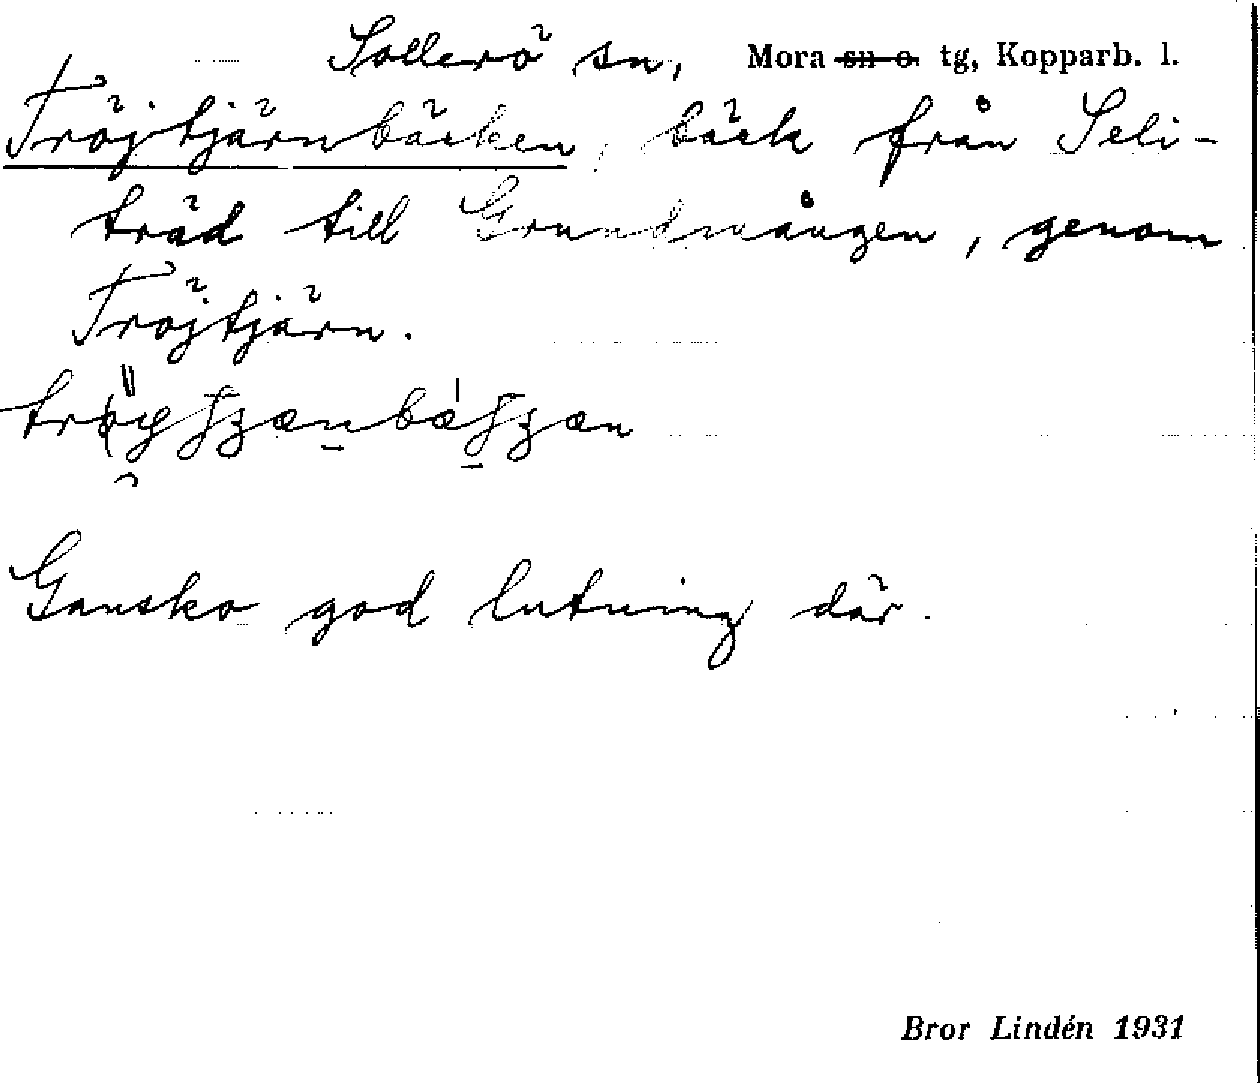 Sollerö sn, Mora sn o. tg, Kopparb. l.
Tröjtjärnbäcken, bäck från Seli-
träd till Grundmången, genom
Tröjtjärn.
Ganska god lutning där.
Bror Lindén 1931